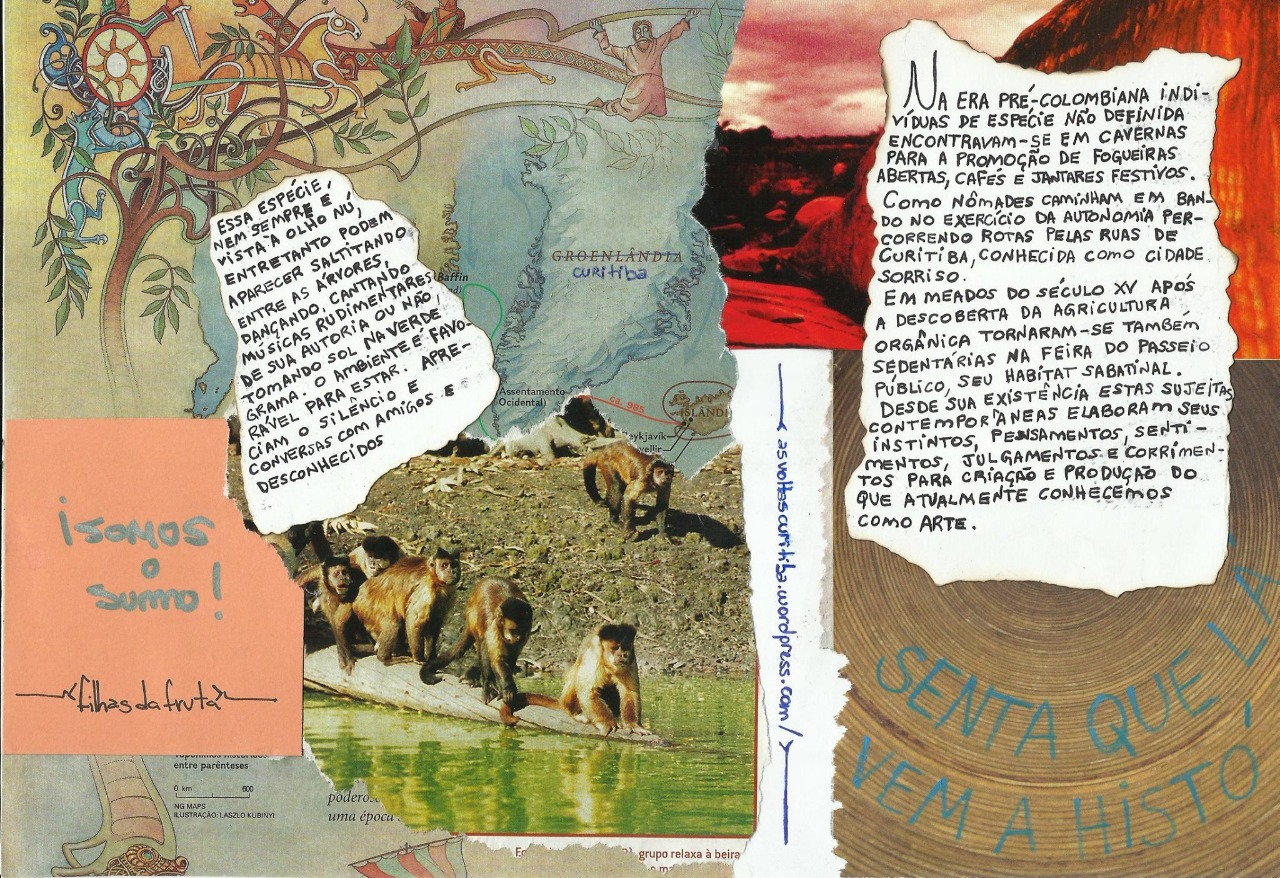 ESSA ESPÉCIE,
NEM SEMPRE É
VISTA A OLHO NÚ,
ENTRETANTO PODEM
APARECER SALTITANDO
ENTRE AS ÁRVORES,
DANÇANDO, CANTANDO
MÚSICAS RUDIMENTARES
DE SUA AUTORIA OU NÃO,
TOMANDO SOL NA VERDE
GRAMA. O AMBIENTE É FAVO-
RÁVEL PARA ESTAR. APRE-
CIAM O SILÊNCIO E
CONVERSAS COM AMIGOS E
DESCONHECIDOS
GROENLÂNDIA
curitiba
Baffin
Assentamento
Ocidental)
ca. 985
ISLÂNDI
eykjavík
vellir
¡SOMOS
o
sumo!
filhas da fruta
entre parênteses
0 km 600
NG MAPS
ILUSTRAÇÃO: LASZLO KUBINYI
uma época
grupo relaxa à beira
asvoltascuritiba.wordpress.com/
NA ERA PRÉ-COLOMBIANA INDI-
VÍDUAS DE ESPÉCIE NÃO DEFINIDA
ENCONTRAVAM-SE EM CAVERNAS
PARA A PROMOÇÃO DE FOGUEIRAS
ABERTAS, CAFÉS E JANTARES FESTIVOS.
COMO NÔMADES CAMINHAM EM BAN-
DO NO EXERCÍCIO DA AUTONOMIA PER-
CORRENDO ROTAS PELAS RUAS DE
CURITIBA, CONHECIDA COMO CIDADE
SORRISO.
EM MEADOS DO SÉCULO XV APÓS
A DESCOBERTA DA AGRICULTURA
ORGÂNICA TORNARAM-SE TAMBÉM
SEDENTÁRIAS NA FEIRA DO PASSEIO
PÚBLICO, SEU HABITAT SABATINAL.
DESDE SUA EXISTÊNCIA ESTAS SUJEITAS
CONTEMPORÂNEAS ELABORAM SEUS
INSTINTOS, PENSAMENTOS, SENTI-
MENTOS, JULGAMENTOS E CORRIMEN-
TOS PARA CRIAÇÃO E PRODUÇÃO DO
QUE ATUALMENTE CONHECEMOS
COMO ARTE.
SENTA QUE LÁ
VEM A HISTÓ-